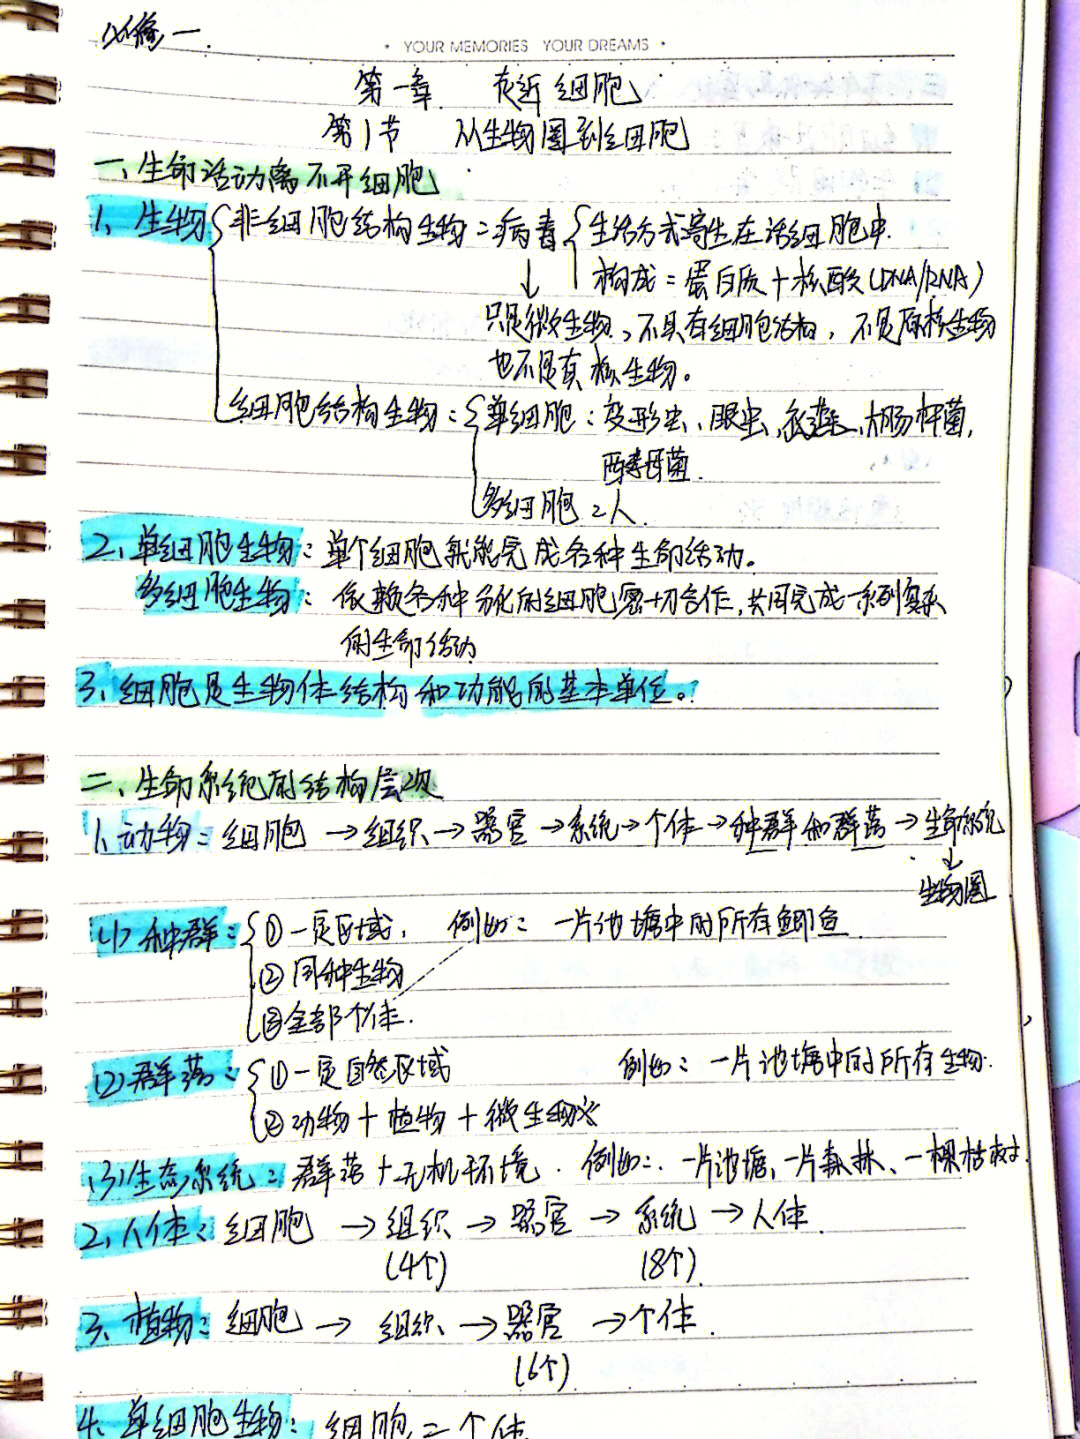 必修一.
• YOUR MEMORIES YOUR DREAMS •
第一章. 走近细胞
第1节 从生物圈到细胞
一、生命活动离不开细胞.
1、生物 非细胞结构生物:病毒 生活方式寄生在活细胞中.
构成:蛋白质+核酸(DNA/RNA)
↓
只是微生物、不具有细胞结构, 不是原核生物
也不是真核生物。
细胞结构生物: 单细胞:变形虫、眼虫、衣藻、大肠杆菌,
酵母菌.
多细胞:人.
2、单细胞生物:单个细胞就能完成各种生命活动。
多细胞生物:依赖各种分化的细胞密切合作,共同完成一系列复杂
的生命活动
3、细胞是生物体结构和功能的基本单位。
二、生命系统的结构层次
1、动物:细胞→组织→器官→系统→个体→种群和群落→生命系统
↓
生物圈
(1)种群: ①一定区域. 例如:一片池塘中的所有鲫鱼.
②同种生物
③全部个体.
(2)群落: ①一定自然区域 例如:一片池塘中的所有生物.
②动物+植物+微生物
(3)生态系统:群落+无机环境. 例如:一片池塘、一片森林、一棵枯树.
2、人体:细胞→组织→器官→系统→人体.
(4个) (8个).
3、植物:细胞→组织、→器官→个体.
(6个)
4、单细胞生物:细胞=个体